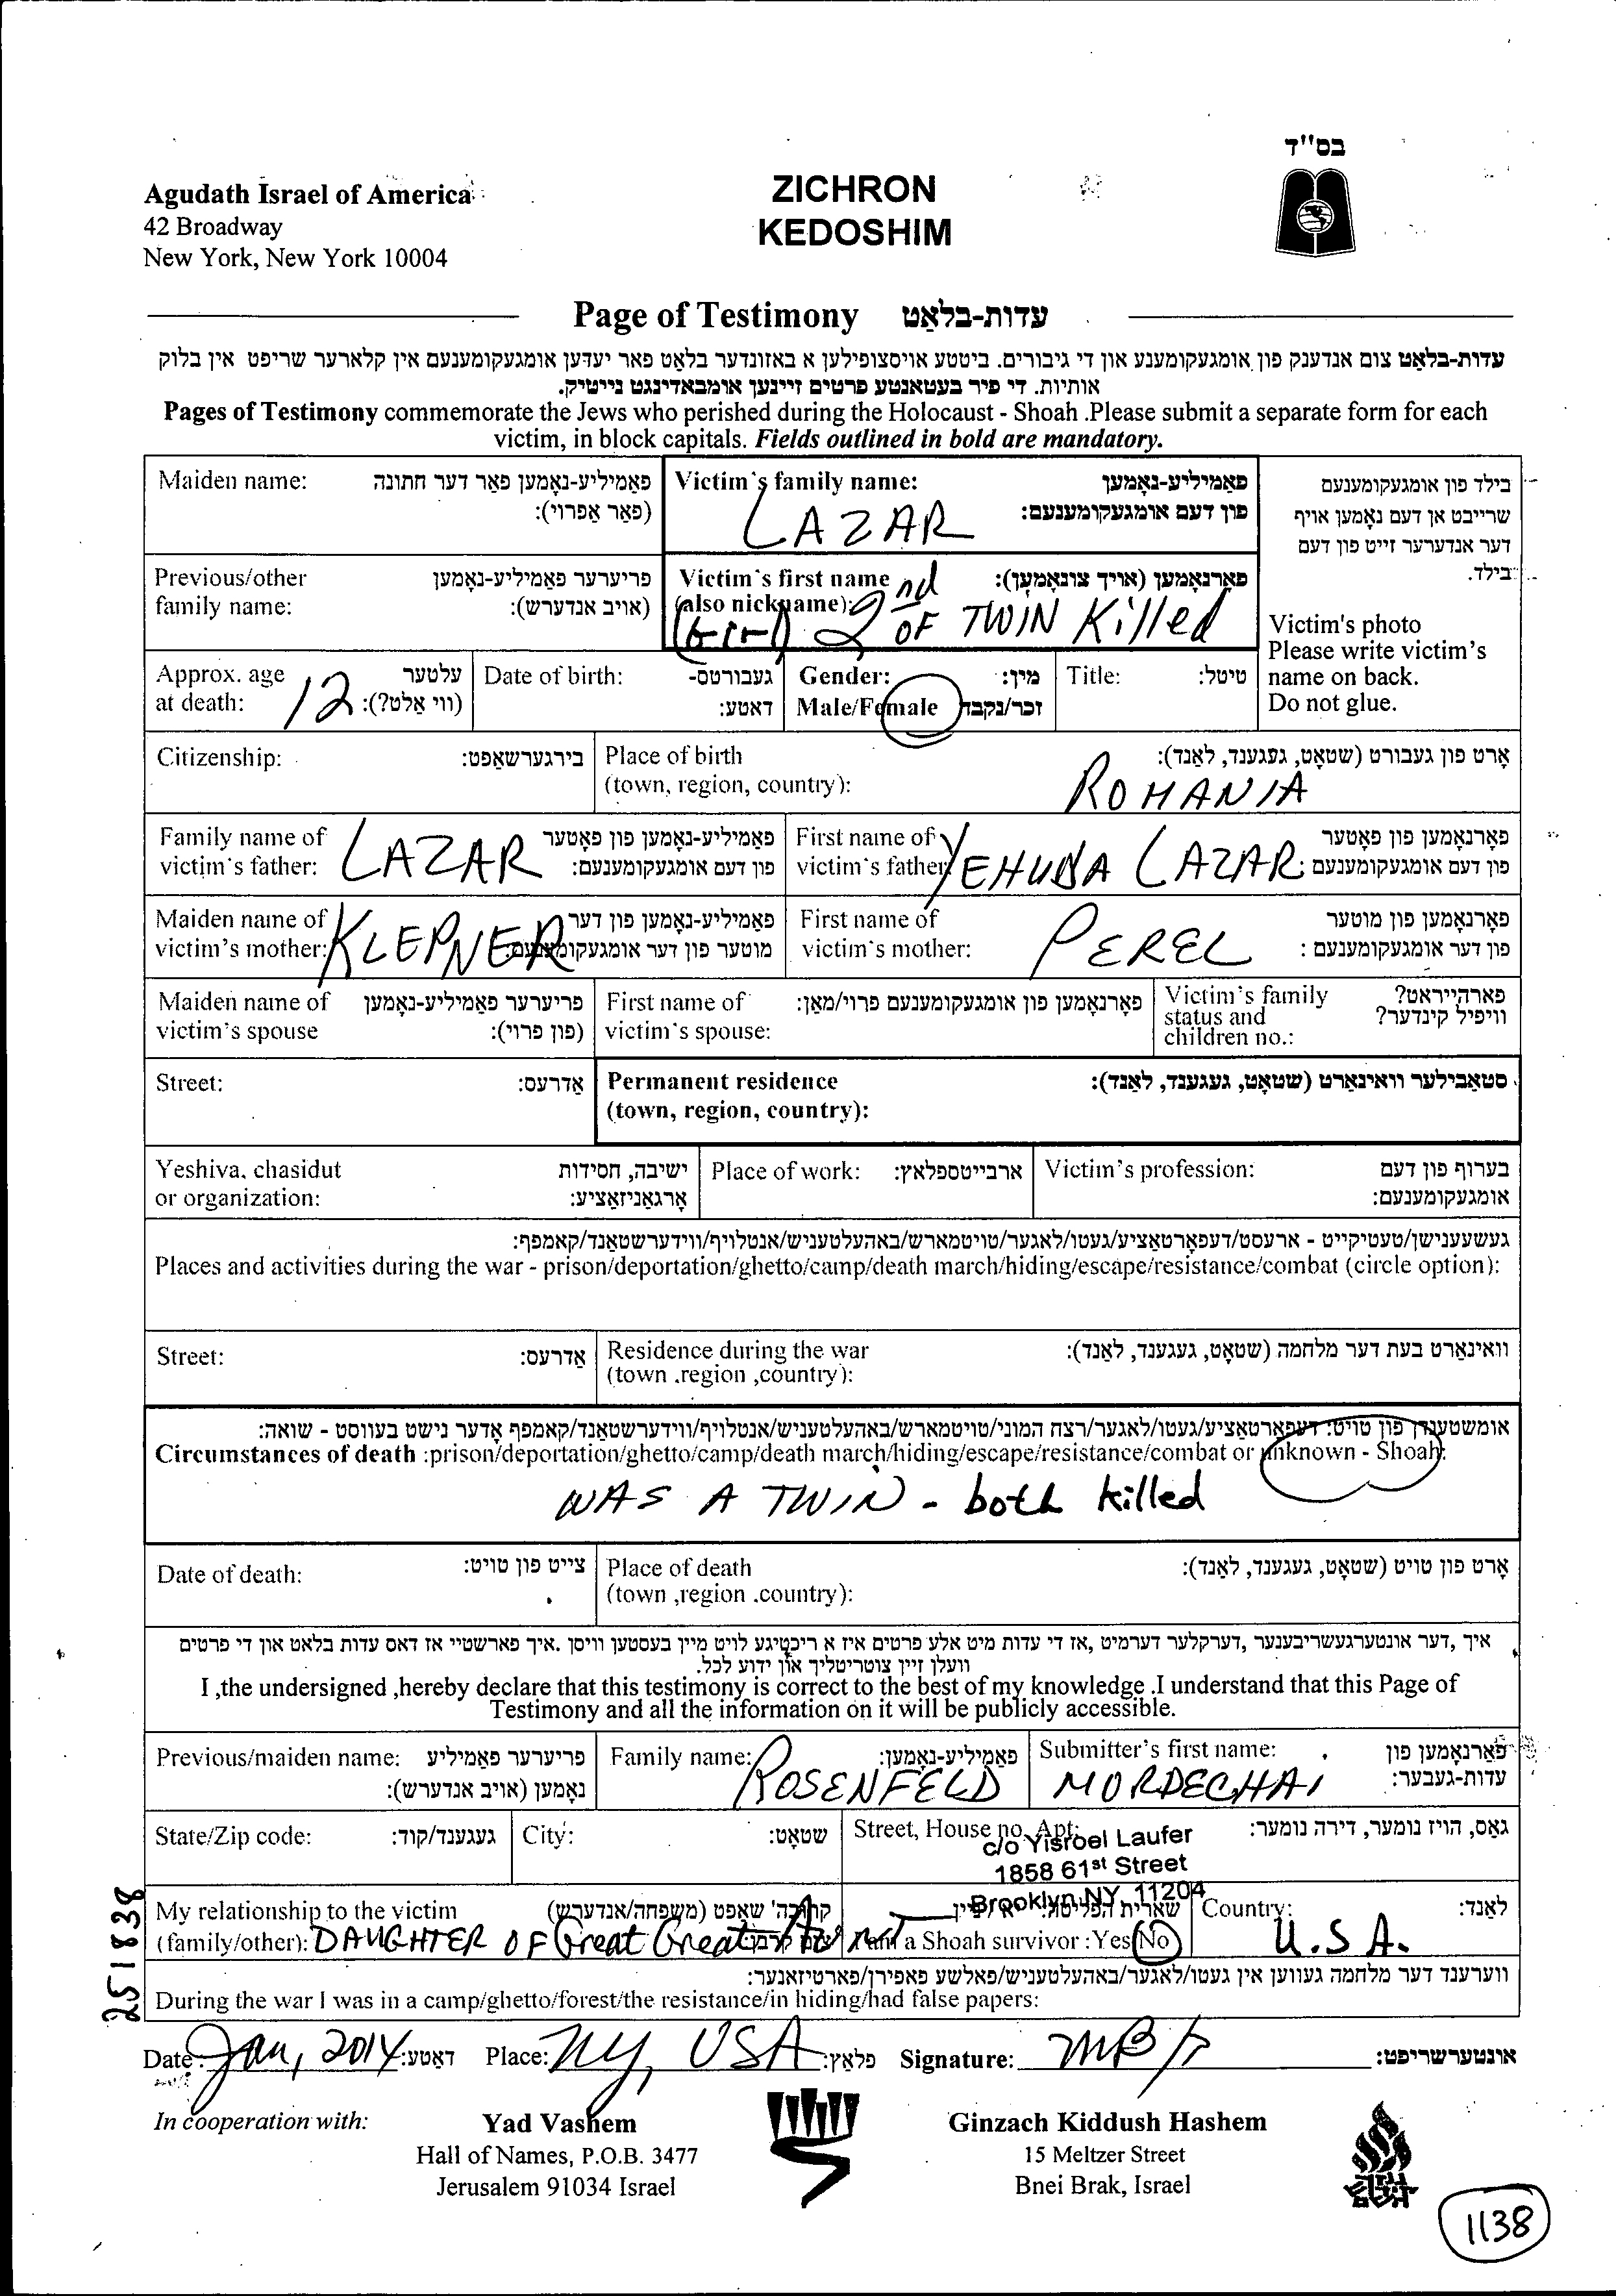 בס"ד
Agudath Israel of America
42 Broadway
New York, New York 10004
ZICHRON
KEDOSHIM
Page of Testimony עדות-בלאַט
עדות-בלאַט צום אנדענק פון אומגעקומענע און די גיבורים. ביטטע אויסצופילען א באזונדער בלאַט פאר יעדען אומגעקומענעם אין קלארער שריפט אין בלוק
אותיות. די פיר בעטאנטע פרטים זיינען אומבאדינגט נייטיק.
Pages of Testimony commemorate the Jews who perished during the Holocaust - Shoah .Please submit a separate form for each
victim, in block capitals. Fields outlined in bold are mandatory.
Maiden name: פאַמיליע-נאָמען פאַר דער חתונה
(פאַר אַפרוי):
Victim's family name: פאַמיליע-נאָמען
פון דעם אומגעקומענעם:
LAZAR
בילד פון אומגעקומענעם
שרייבט אן דעם נאָמען אויף
דער אנדערער זייט פון דעם
בילד.
Victim's photo
Please write victim's
name on back.
Do not glue.
Previous/other פריערער פאַמיליע-נאָמען
family name: (אויב אנדערש):
Victim's first name פאָרנאָמען (אויך צונאָמען):
(also nickname):
(Girl) 2nd OF TWIN Killed
Approx. age עלטער
at death: 12 (ווי אלט?):
Date of birth: געבורטס-
דאַטע:
Gender: מין:
Male/Female זכר/נקבה
Title: טיטל:
Citizenship: בירגערשאַפט:
Place of birth אָרט פון געבורט (שטאָט, געגענד, לאַנד):
(town, region, country):
ROMANIA
Family name of פאַמיליע-נאָמען פון פאָטער
victim's father: LAZAR פון דעם אומגעקומענעם:
First name of פאָרנאָמען פון פאָטער
victim's father: YEHUDA LAZAR פון דעם אומגעקומענעם:
Maiden name of פאַמיליע-נאָמען פון דער
victim's mother: KLEPNER מוטער פון דער אומגעקומענעם:
First name of פאָרנאָמען פון מוטער
victim's mother: PEREL פון דער אומגעקומענעם :
Maiden name of פריערער פאַמיליע-נאָמען
victim's spouse (פון פרוי):
First name of פאָרנאָמען פון אומגעקומענעם פרוי/מאַן:
victim's spouse:
Victim's family פארהייראט?
status and וויפיל קינדער?
children no.:
Street: אַדרעס:
Permanent residence סטאַבילער וואוינאָרט (שטאָט, געגענד, לאַנד):
(town, region, country):
Yeshiva, chasidut ישיבה, חסידות
or organization: אָרגאַניזאַציע:
Place of work: ארבייטספלאץ:
Victim's profession: בערוף פון דעם
אומגעקומענעם:
געשעענישן/טעטיקייט - ארעסט/דעפאָרטאַציע/געטו/לאגער/טויטמארש/באהעלטעניש/אנטלויף/ווידערשטאַנד/קאמפף:
Places and activities during the war - prison/deportation/ghetto/camp/death march/hiding/escape/resistance/combat (circle option):
Street: אַדרעס:
Residence during the war וואוינאָרט בעת דער מלחמה (שטאָט, געגענד, לאַנד):
(town .region ,country):
אומשטענדן פון טויט: דעפאָרטאַציע/געטו/לאגער/רצח המוני/טויטמארש/באהעלטעניש/אנטלויף/ווידערשטאַנד/קאמפף אָדער נישט בעווסט - שואה:
Circumstances of death :prison/deportation/ghetto/camp/death march/hiding/escape/resistance/combat or unknown - Shoah:
WAS A TWIN - both killed
Date of death: צייט פון טויט:
Place of death אָרט פון טויט (שטאָט, געגענד, לאַנד):
(town ,region .country):
איך ,דער אונטערגעשריבענער ,דערקלער דערמיט ,אז די עדות מיט אלע פרטים איז א ריכטיגע לויט מיין בעסטען וויסן .איך פארשטיי אז דאס עדות בלאט און די פרטים
וועלן זיין צוטריטליך און ידוע לכל.
I ,the undersigned ,hereby declare that this testimony is correct to the best of my knowledge .I understand that this Page of
Testimony and all the information on it will be publicly accessible.
Previous/maiden name: פריערער פאַמיליע
נאָמען (אויב אנדערש):
Family name: פאַמיליע-נאָמען:
ROSENFELD
Submitter's first name: פאָרנאָמען פון
עדות-געבער:
MORDECHAI
State/Zip code: געגענד/קוד:
City: שטאָט:
Street, House no. Apt: גאַס, הויז נומער, דירה נומער:
c/o Yisroel Laufer
1858 61st Street
Brooklyn NY, 11204
My relationship to the victim קרובה'שאפט (משפחה/אנדערש)
(family/other): DAUGHTER OF Great Great Aunt
שארית הפליטה:
I am a Shoah survivor :Yes/No
Country: לאַנד:
U.S.A.
ווערענד דער מלחמה געווען אין געטו/לאגער/באהעלטעניש/פאלשע פאפירן/פארטיזאנער:
During the war I was in a camp/ghetto/forest/the resistance/in hiding/had false papers:
251838
Date: Jan, 2014 דאַטע: Place: NY, USA פלאַץ: Signature: אונטערשריפט:
In cooperation with:
Yad Vashem
Hall of Names, P.O.B. 3477
Jerusalem 91034 Israel
Ginzach Kiddush Hashem
15 Meltzer Street
Bnei Brak, Israel
1138